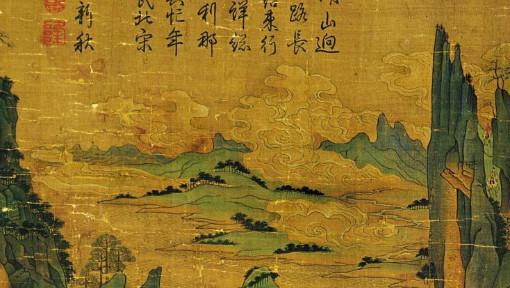 山迥
路長
結束行
詳總
利那
忙年
氏北宋
新秋